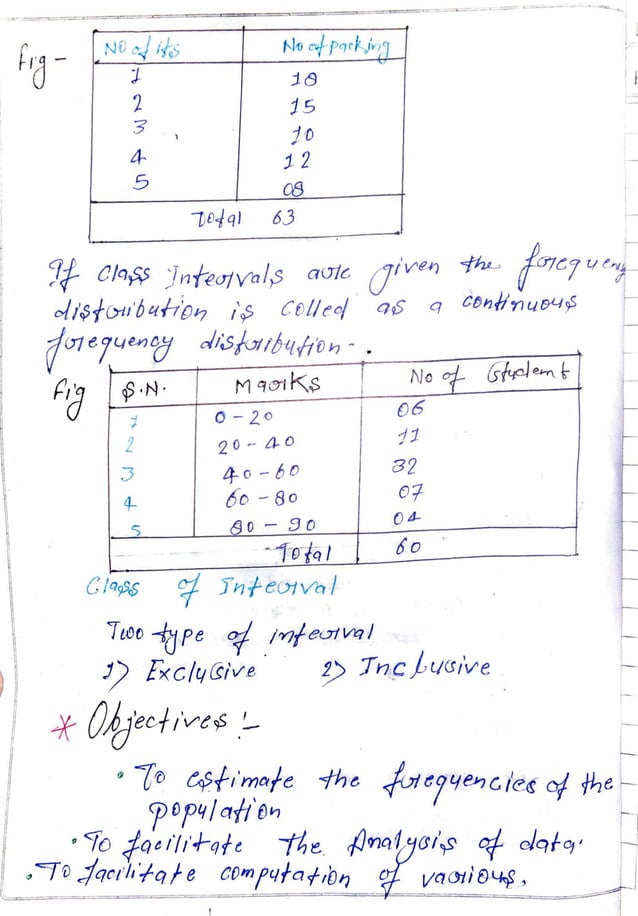 Fig -
No of its No of packing
1 18
2 15
3 10
4 12
5 08
Total 63
If class Intervals are given the frequency
distribution is Colled as a continuous
frequency distribution -.
Fig
S.N. Marks No of Student
1 0-20 06
2 20-40 11
3 40-60 32
4 60-80 07
5 80-90 04
Total 60
Class of Interval
Two type of interval
1) Exclusive 2) Inclusive
* Objectives :-
• To estimate the frequencies of the
population
• To facilitate the Analysis of data.
• To facilitate computation of various.